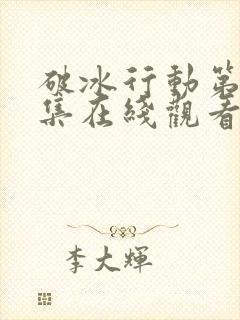 破冰行動第
集在綫觀看
李大輝